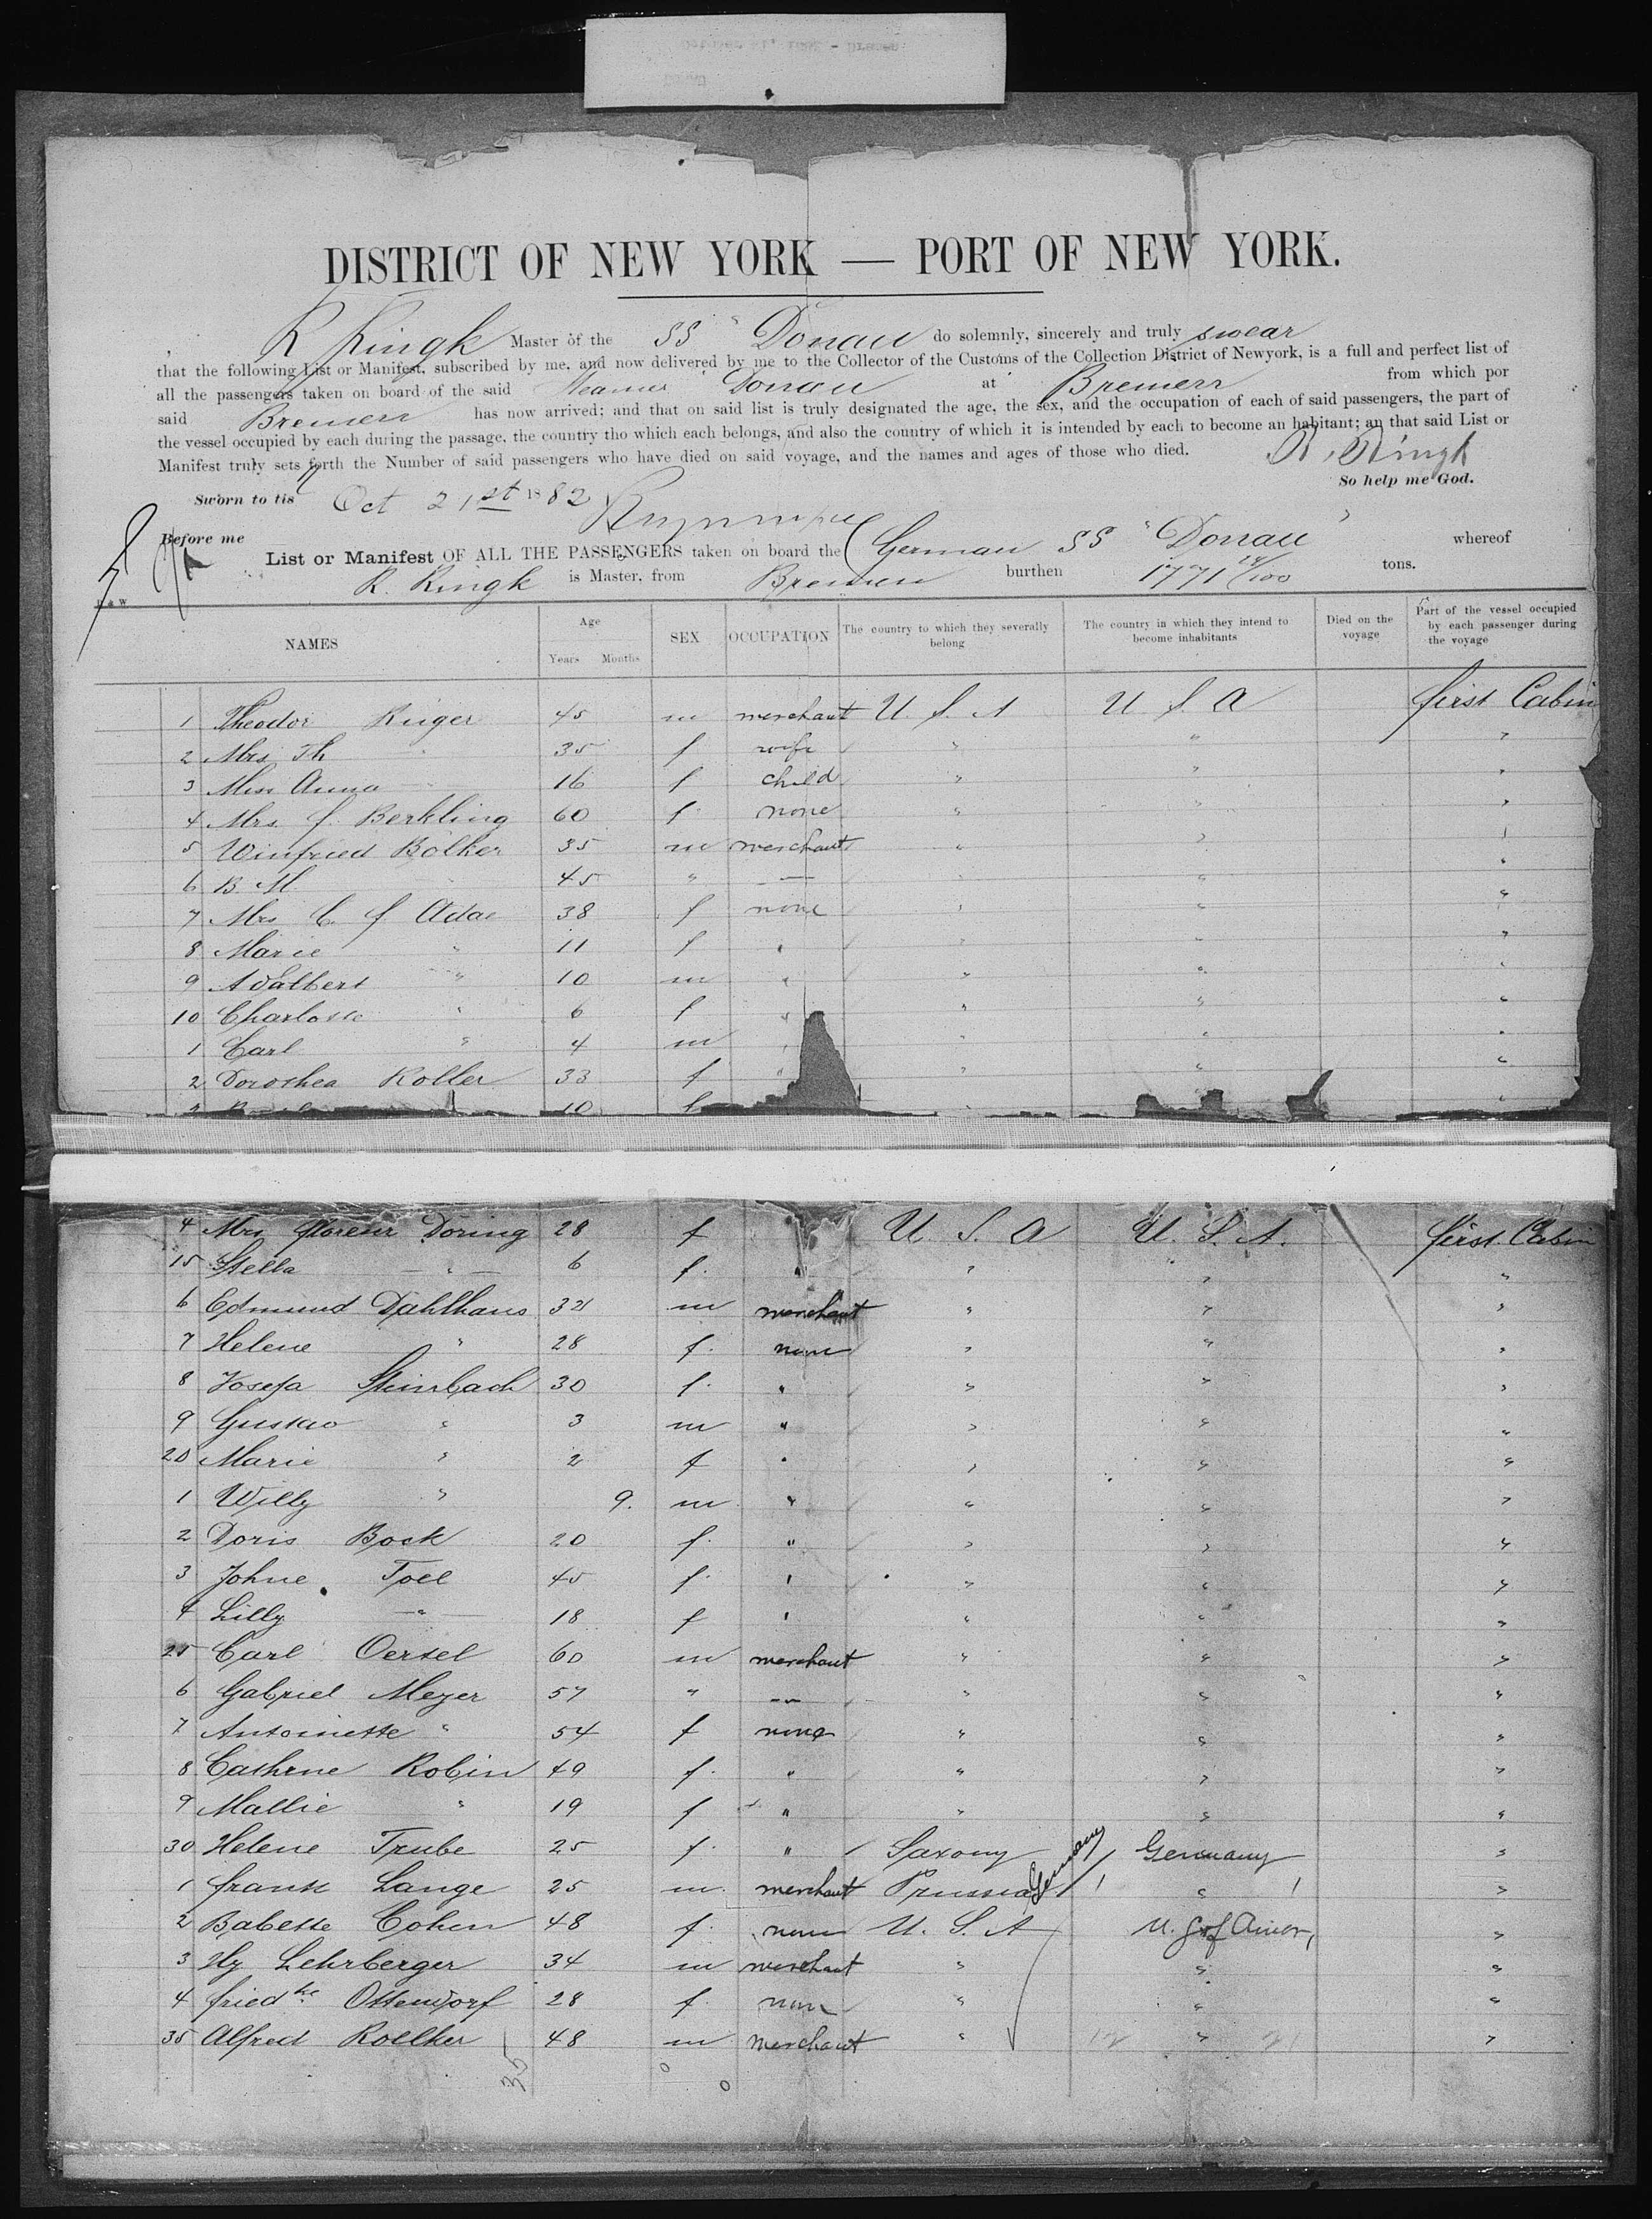 DISTRICT OF NEW YORK — PORT OF NEW YORK.
R Ringk Master of the SS " Donau do solemnly, sincerely and truly swear
that the following List or Manifest, subscribed by me, and now delivered by me to the Collector of the Customs of the Collection District of Newyork, is a full and perfect list of
all the passengers taken on board of the said Steamer Donau at Bremen from which por
said Bremen has now arrived; and that on said list is truly designated the age, the sex, and the occupation of each of said passengers, the part of
the vessel occupied by each during the passage, the country tho which each belongs, and also the country of which it is intended by each to become an habitant; an that said List or
Manifest truly sets forth the Number of said passengers who have died on said voyage, and the names and ages of those who died. R. Ringk
So help me God.
Sworn to tis Oct 21st 1882
Before me
List or Manifest OF ALL THE PASSENGERS taken on board the German SS "Donau" whereof
R. Ringk is Master, from Bremen burthen 1771 /100 tons.
NAMES Age Years Months SEX OCCUPATION The country to which they severally belong The country in which they intend to become inhabitants Died on the voyage Part of the vessel occupied by each passenger during the voyage
1 Theodor Ruger 45 m merchant U. S. A U S. A first Cabin
2 Mrs Th " 35 f wife " " "
3 Miss Anna 16 f child " " "
4 Mrs. f. Berkling 60 f. none " " "
5 Winfried Bölker 35 m merchant " " "
6 B. M. " 45 " — " " "
7 Mrs C. f Adae 38 f none " " "
8 Marie " 11 f " " " "
9 Adalbert " 10 m " " " "
10 Charlotte " 6 f " " " "
1 Carl " 4 m " " " "
2 Dorothea Koller 33 f " " " "
10 f
4 Mrs Doring 28 f " U. S. A U. S. A. first Cabin
15 Stella " 6 f. " " " "
6 Edmund Dahlhaus 32 m merchant " " "
7 Helene " 28 f. none " " "
8 Josefa Steinbach 30 f. " " " "
9 Gustav " 3 m " " " "
20 Marie " 2 f " " " "
1 Willy " 9. m " " " "
2 Doris Bock 20 f. " " " "
3 Johne Toel 45 f. " " " "
4 Lilly — " — 18 f " " " "
25 Carl Oertel 60 m merchant " " "
6 Gabriel Meyer 57 " — " " "
7 Antoinette " 54 f none " " "
8 Cathrne Robin 49 f. " " " "
9 Mallie " 19 f " " " "
30 Helene Trube 25 f. " Saxony Germany "
Germany
1 frank Lange 25 m. merchant Prussia " "
2 Babette Cohen 48 f. none U. S. A U. S of Amer, "
3 Hy Lehrberger 34 m merchant " " "
4 friedke Ottendorf 28 f. none " " "
35 Alfred Roelker 48 m merchant " " "
35